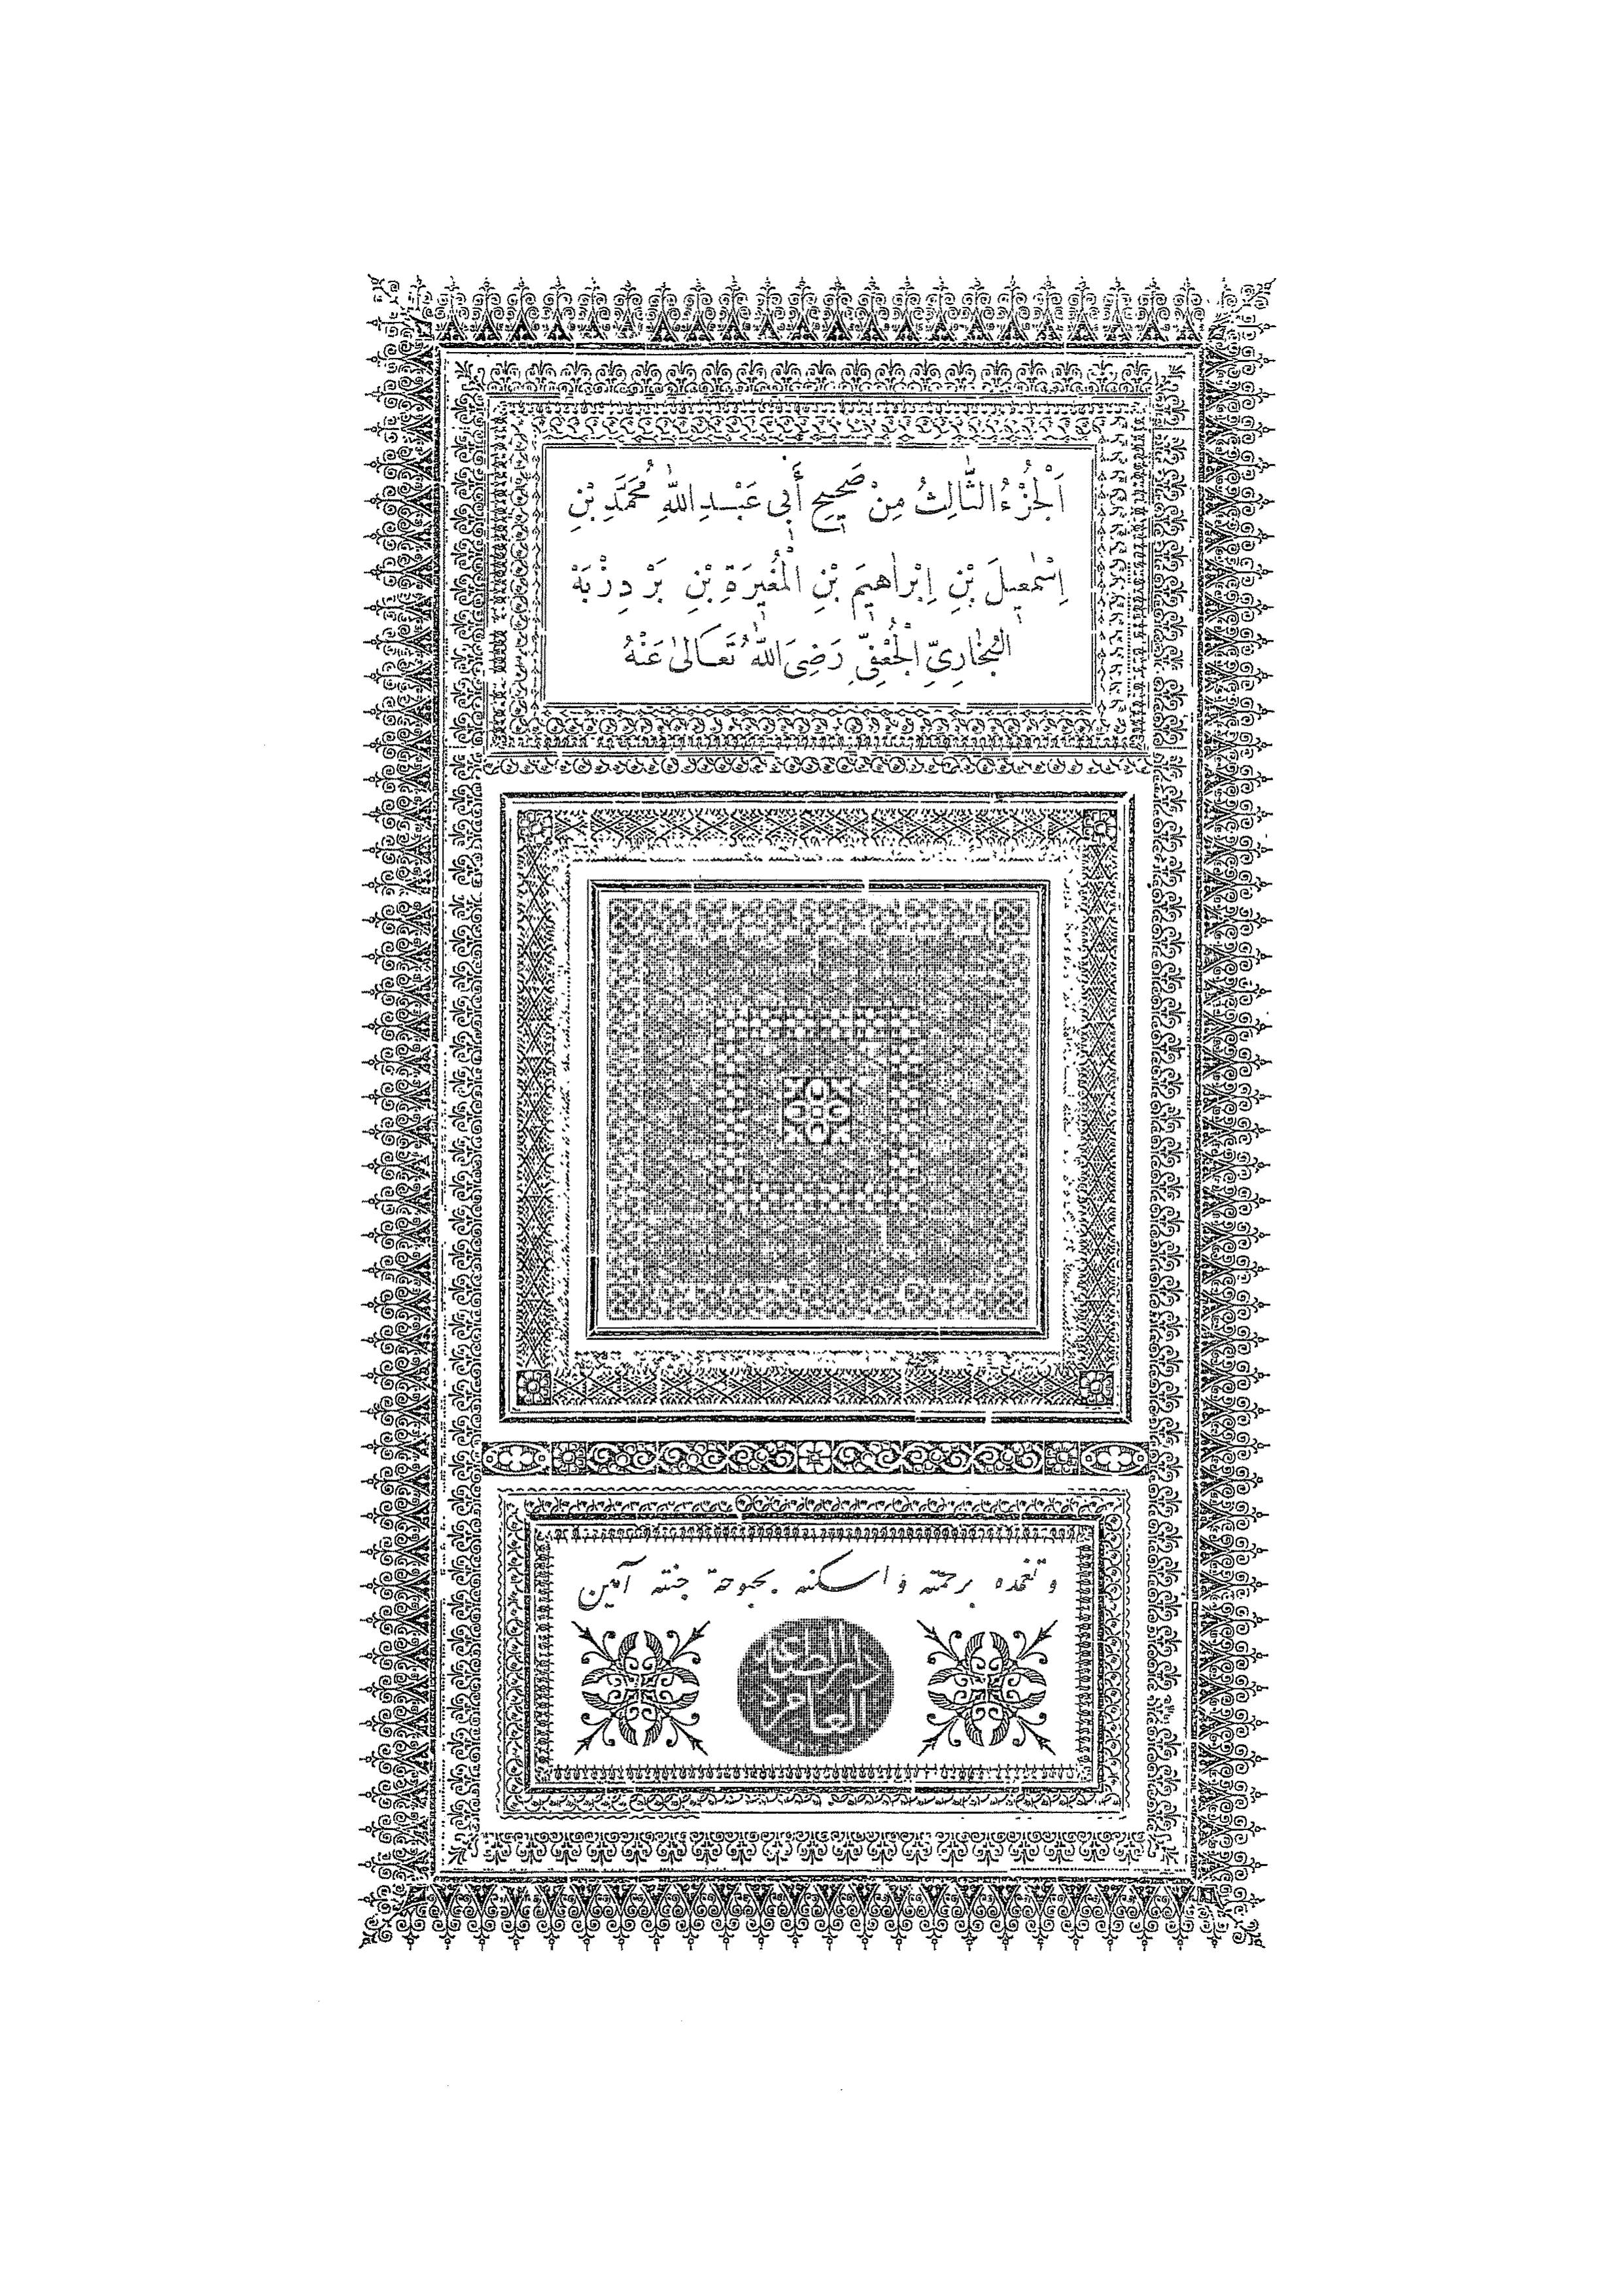 اَلْجُزْءُ الثَّالِثُ مِنْ صَحِيحِ أَبِي عَبْدِ اللّٰهِ مُحَمَّدِ بْنِ
اِسْمٰعِيلَ بْنِ اِبْرَاهِيمَ بْنِ الْمُغِيرَةِ بْنِ بَرْدِزْبَهْ
الْبُخَارِيِّ الْجُعْفِيِّ رَضِيَ اللّٰهُ تَعَالٰى عَنْهُ
وتغمده برحمته واسكنه بحبوحة جنته آمين